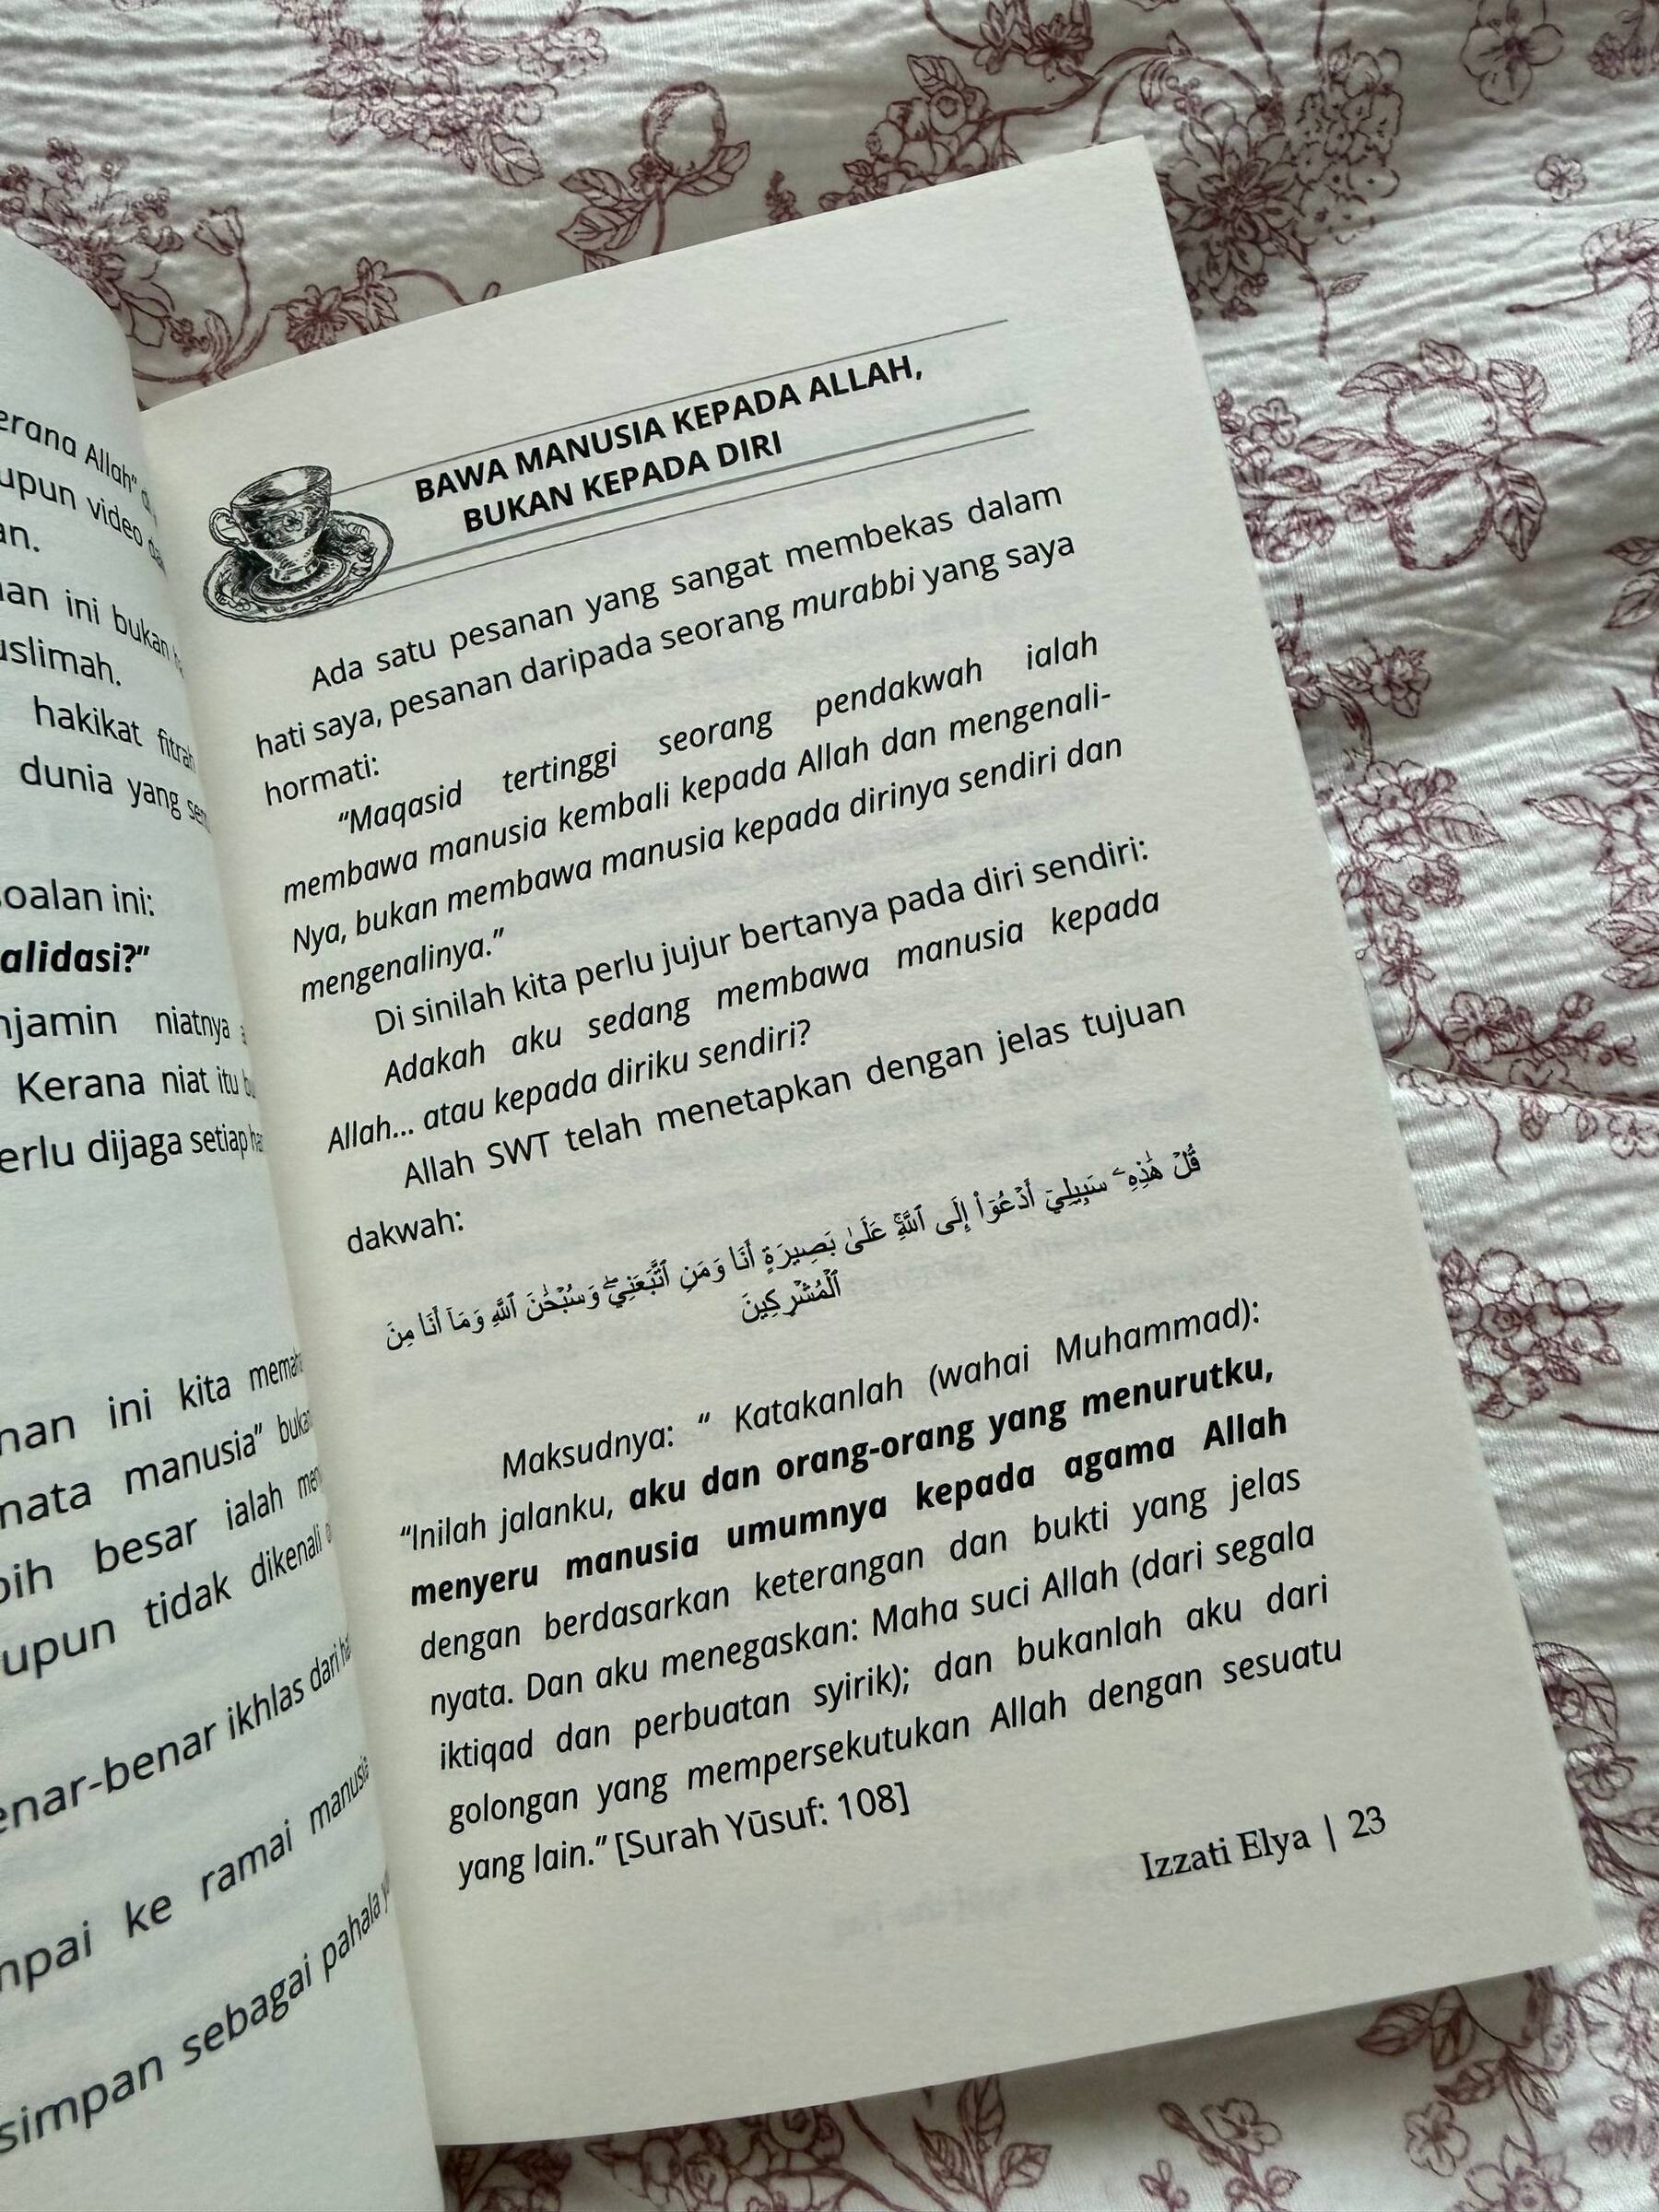 erana Allah"
upun video
an.
ini bukan
uslimah.
hakikat fitrah
dunia yang
soalan ini:
alidasi?"
niatnya
Kerana niat itu
erlu dijaga setiap
ini kita
mata manusia"
besar ialah
tidak dikenali
enar-benar ikhlas dari
ke ramai manusia
simpan sebagai pahala
BAWA MANUSIA KEPADA ALLAH,
BUKAN KEPADA DIRI
Ada satu pesanan yang sangat membekas dalam
hati saya, pesanan daripada seorang murabbi yang saya
hormati:
"Maqasid tertinggi seorang pendakwah ialah
membawa manusia kembali kepada Allah dan mengenali-
Nya, bukan membawa manusia kepada dirinya sendiri dan
mengenalinya."
Di sinilah kita perlu jujur bertanya pada diri sendiri:
Adakah aku sedang membawa manusia kepada
Allah... atau kepada diriku sendiri?
Allah SWT telah menetapkan dengan jelas tujuan
dakwah:
قُلۡ هَٰذِهِۦ سَبِيلِيٓ أَدۡعُوٓاْ إِلَى ٱللَّهِۚ عَلَىٰ بَصِيرَةٍ أَنَا۠ وَمَنِ ٱتَّبَعَنِيۖ وَسُبۡحَٰنَ ٱللَّهِ وَمَآ أَنَا۠ مِنَ
ٱلۡمُشۡرِكِينَ
Maksudnya: " Katakanlah (wahai Muhammad):
"Inilah jalanku, aku dan orang-orang yang menurutku,
menyeru manusia umumnya kepada agama Allah
dengan berdasarkan keterangan dan bukti yang jelas
nyata. Dan aku menegaskan: Maha suci Allah (dari segala
iktiqad dan perbuatan syirik); dan bukanlah aku dari
golongan yang mempersekutukan Allah dengan sesuatu
yang lain." [Surah Yūsuf: 108]
Izzati Elya | 23